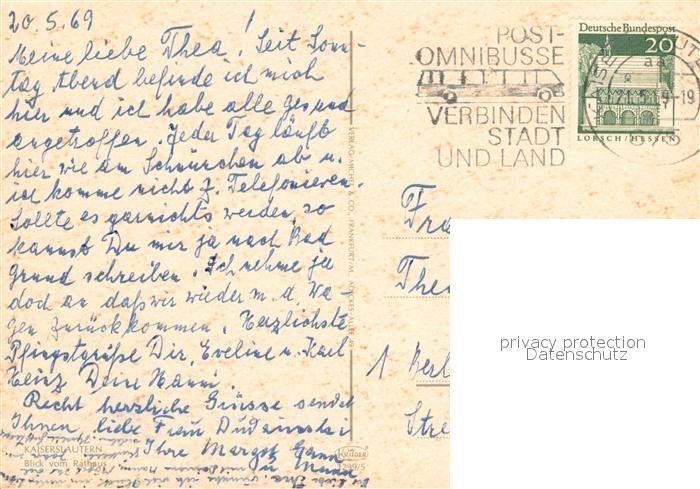 20.5.69
Meine liebe Thea! Seit Sonn-
tag Abend befinde ich mich
hier und ich habe alle gesund
angetroffen. Jeder Tag läuft
hier wie am Schnürchen ab u.
ich komme nicht z. Telefonieren.
Sollte es garnichts werden, so
kannst Du mir ja nach Bad
Grund schreiben. Ich nehme ja
doch an daß wir wieder m. d. Wa-
gen zurückkommen. Herzlichste
Pfingstgrüße Dir, Eveline u. Karl
Heinz Deine Hanni.
Recht herzliche Grüsse sendet
Ihnen, liebe Frau
Ihre Margot
KAISERSLAUTERN
Blick vom Rathaus
VERLAG MICHEL & CO., FRANKFURT/M.
Krüger
1299/5
POST-
OMNIBUSSE
VERBINDEN
STADT
UND LAND
Deutsche Bundespost
20
LORSCH/HESSEN
Fra
Thea
1 Berl
Stre
privacy protection
Datenschutz